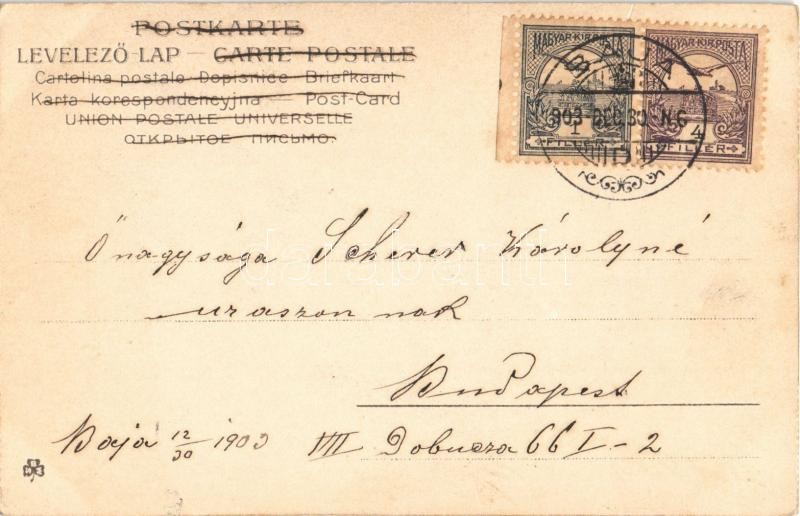 POSTKARTE
LEVELEZŐ-LAP — CARTE POSTALE
Cartolina postale Dopisnice Briefkaart
Karta korespondencyjna — Post-Card
UNION POSTALE UNIVERSELLE
ОТКРЫТОЕ ПИСЬМО.
MAGYAR·KIR·POSTA
1
FILLÉR
MAGYAR·KIR·POSTA
4
FILLÉR
BAJA
903 DEC 30 N6
Őnagysága Scherer Károlyné
uraszon nak
Budapest
Baja 12/30 1903 VII Dobucza 66 I-2
darabanth